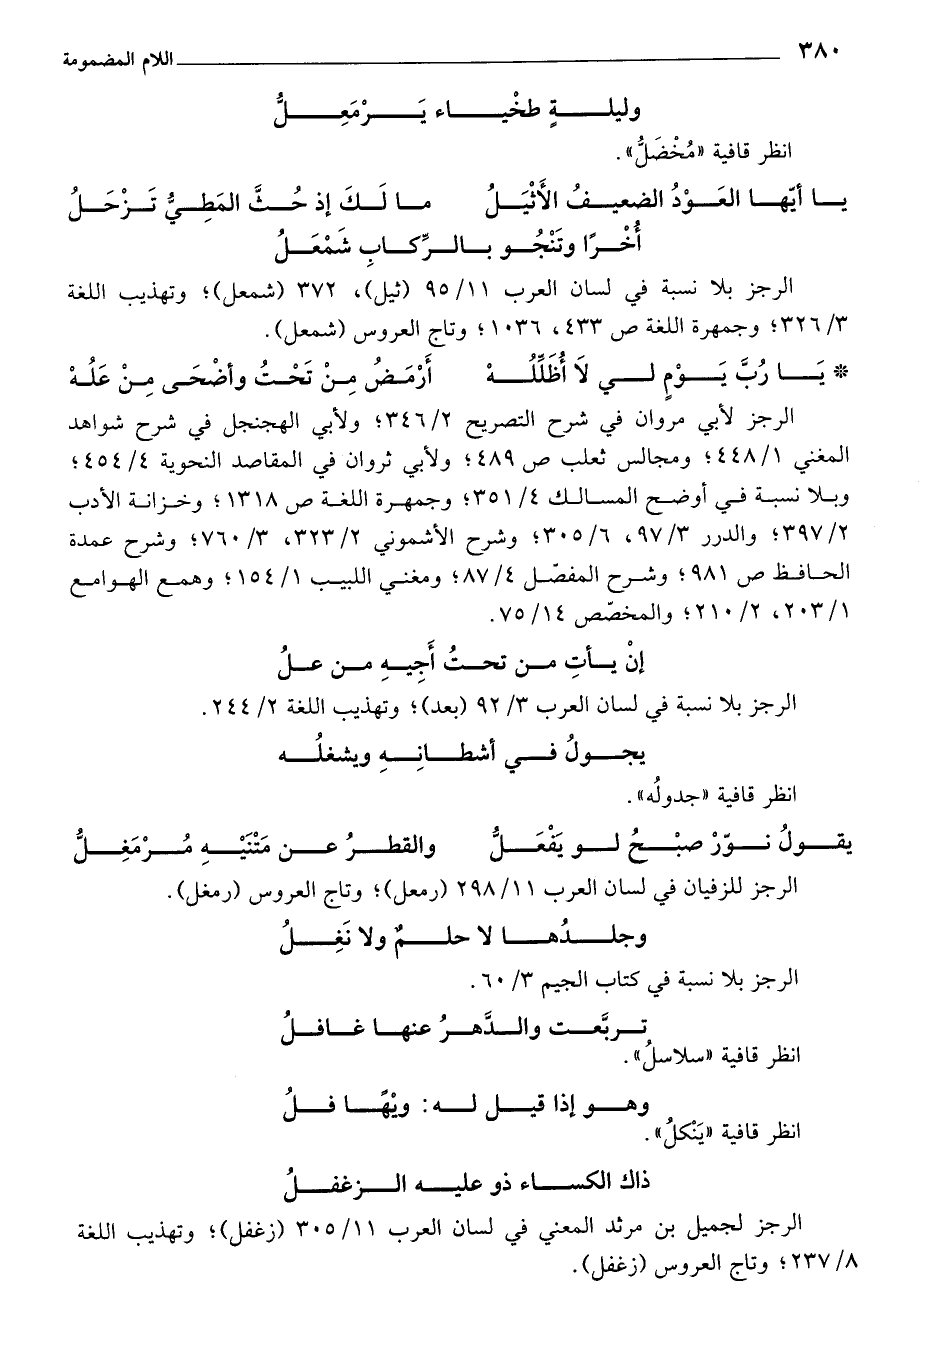 ٣٨٠ اللام المضمومة
وليلةٍ طخْياء يَرْمَعِلُّ
انظر قافية «مُخْضَلُّ».
يا أيّها العَوْدُ الضعيفُ الأَثْيَلُ ما لَكَ إذ حُثَّ المَطِيُّ تَزْحَلُ
أُخْرًا وتَنْجُو بالرِّكابِ شَمْعَلُ
الرجز بلا نسبة في لسان العرب ١١/ ٩٥ (ثيل)، ٣٧٢ (شمعل)؛ وتهذيب اللغة
٣/ ٣٢٦؛ وجمهرة اللغة ص ٤٣٣، ١٠٣٦؛ وتاج العروس (شمعل).
* يَا رُبَّ يَوْمٍ لي لَا أُظَلَّلُهْ أَرْمَضُ مِنْ تَحْتُ وأضْحَى مِنْ عَلُهْ
الرجز لأبي مروان في شرح التصريح ٢/ ٣٤٦؛ ولأبي الهجنجل في شرح شواهد
المغني ١/ ٤٤٨؛ ومجالس ثعلب ص ٤٨٩؛ ولأبي ثروان في المقاصد النحوية ٤/ ٤٥٤؛
وبلا نسبة في أوضح المسالك ٤/ ٣٥١؛ وجمهرة اللغة ص ١٣١٨؛ وخزانة الأدب
٢/ ٣٩٧؛ والدرر ٣/ ٩٧، ٦/ ٣٠٥؛ وشرح الأشموني ٢/ ٣٢٣، ٣/ ٧٦٠؛ وشرح عمدة
الحافظ ص ٩٨١؛ وشرح المفصّل ٤/ ٨٧؛ ومغني اللبيب ١/ ١٥٤؛ وهمع الهوامع
١/ ٢٠٣، ٢/ ٢١٠؛ والمخصّص ١٤/ ٧٥.
إنْ يأتِ من تحتُ أَجِيهِ من علُ
الرجز بلا نسبة في لسان العرب ٣/ ٩٢ (بعد)؛ وتهذيب اللغة ٢/ ٢٤٤.
يجولُ في أشطانِهِ ويشغلُه
انظر قافية «جدولُه».
يقولُ نوّرْ صبْحُ لو يَفْعَلُّ والقطرُ عن مَتْنَيْهِ مُرْمَغِلُّ
الرجز للزفيان في لسان العرب ١١/ ٢٩٨ (رمعل)؛ وتاج العروس (رمغل).
وجلدُها لا حلمٌ ولا نَغِلُ
الرجز بلا نسبة في كتاب الجيم ٣/ ٦٠.
تربَّعت والدَّهرُ عنها غافلُ
انظر قافية «سلاسلُ».
وهو إذا قيل له: ويْهًا فلُ
انظر قافية «يَنْكلُ».
ذاك الكساء ذو عليه الزغفلُ
الرجز لجميل بن مرثد المعني في لسان العرب ١١/ ٣٠٥ (زغفل)؛ وتهذيب اللغة
٨/ ٢٣٧؛ وتاج العروس (زغفل).